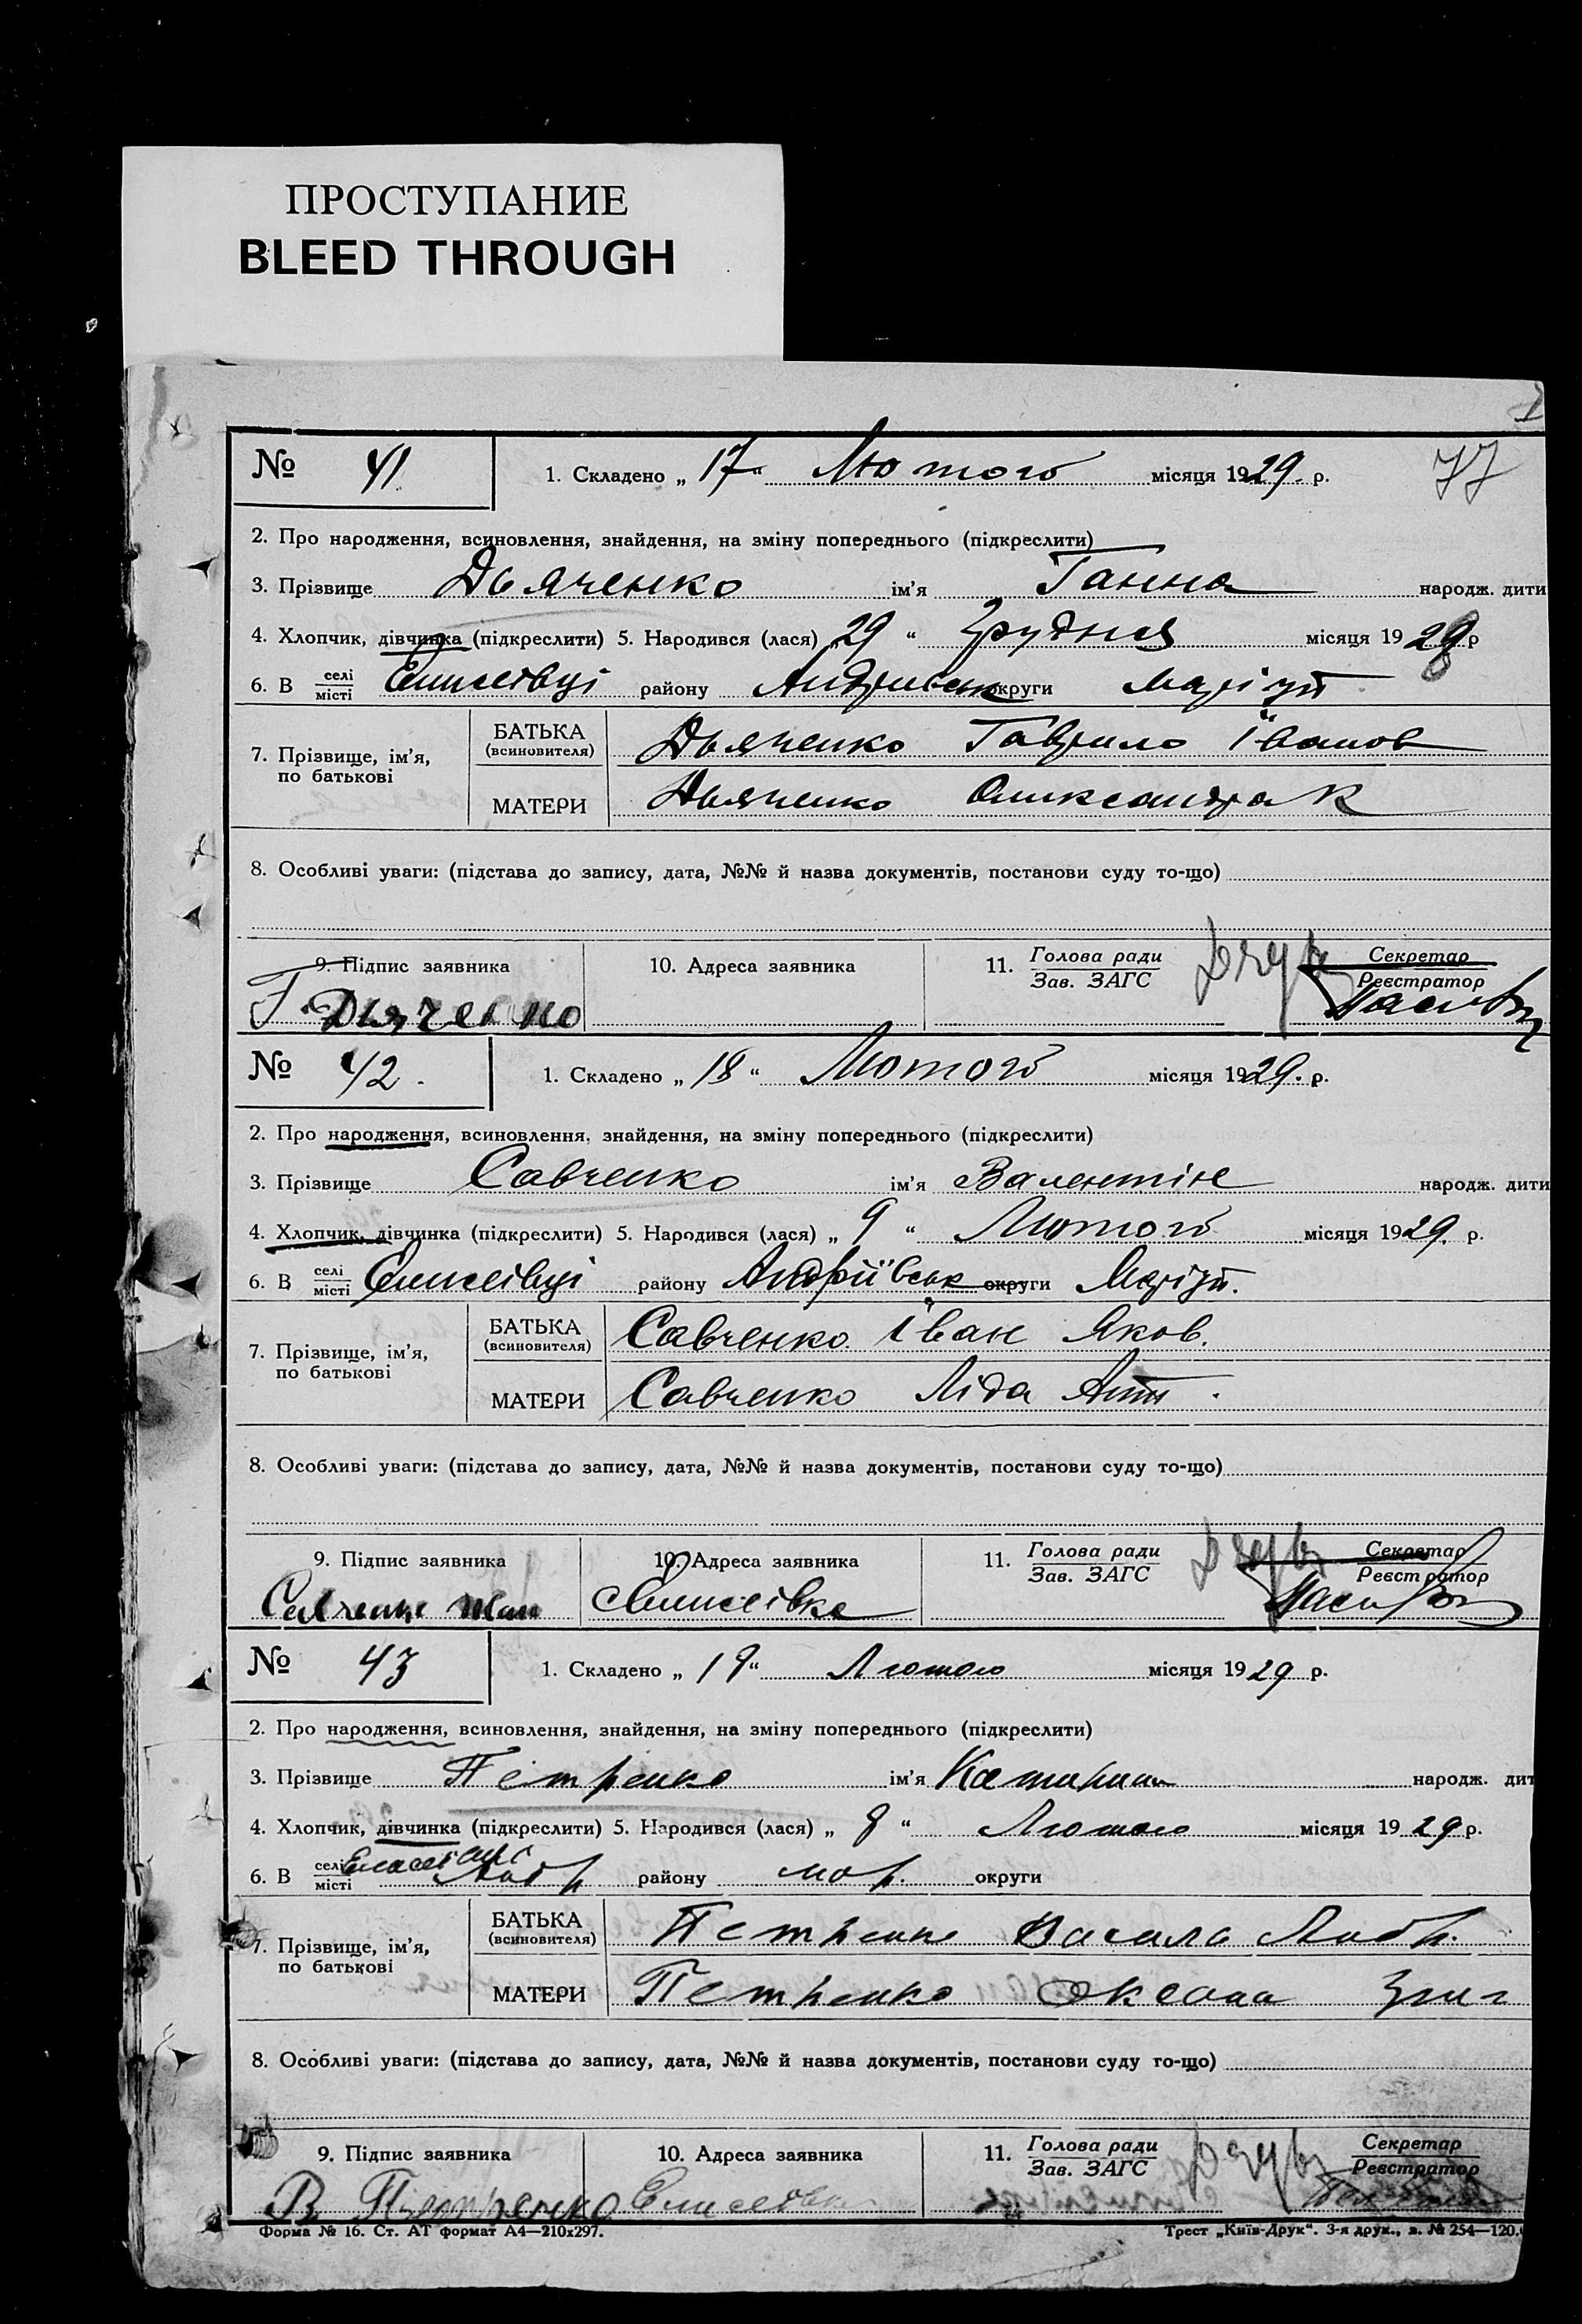 ПРОСТУПАНИЕ
BLEED THROUGH
77
№ 41 1. Складено „ 17 “ Лютого місяця 1929. р.
2. Про народження, всиновлення, знайдення, на зміну попереднього (підкреслити)
3. Прізвище Дьяченко ім’я Ганна народж. дити
4. Хлопчик, дівчинка (підкреслити) 5. Народився (лася) „ 29 “ Грудня місяця 1928 р
6. В селі місті Елисеівці району Андриівськ округи Маріуп
7. Прізвище, ім’я, по батькові
БАТЬКА (всиновителя) Дьяченко Гаврило Іванов
МАТЕРИ Дьяченко Олександра К
8. Особливі уваги: (підстава до запису, дата, №№ й назва документів, постанови суду то-що)
9. Підпис заявника 10. Адреса заявника 11. Голова ради Зав. ЗАГС Секретар Реєстратор
Г. Дьяченко
№ 42. 1. Складено „ 18 “ Лютого місяця 1929. р.
2. Про народження, всиновлення, знайдення, на зміну попереднього (підкреслити)
3. Прізвище Савченко ім’я Валентін народж. дити
4. Хлопчик, дівчинка (підкреслити) 5. Народився (лася) „ 9 “ Лютого місяця 1929. р.
6. В селі місті Елисеівці району Андріївськ округи Маріуп.
7. Прізвище, ім’я, по батькові
БАТЬКА (всиновителя) Савченко Іван Яков.
МАТЕРИ Савченко Ліда Ант.
8. Особливі уваги: (підстава до запису, дата, №№ й назва документів, постанови суду то-що)
9. Підпис заявника 10. Адреса заявника 11. Голова ради Зав. ЗАГС Секретар Реєстратор
Савченко Иван Елисеівка
№ 43 1. Складено „ 19 “ Лютого місяця 1929 р.
2. Про народження, всиновлення, знайдення, на зміну попереднього (підкреслити)
3. Прізвище Петренко ім’я Катерина народж. дит
4. Хлопчик, дівчинка (підкреслити) 5. Народився (лася) „ 8 “ Лютого місяця 1929 р.
6. В селі місті Елисеівці Андр району мар. округи
7. Прізвище, ім’я, по батькові
БАТЬКА (всиновителя) Петренко Василь Андр.
МАТЕРИ Петренко Оксана Григ
8. Особливі уваги: (підстава до запису, дата, №№ й назва документів, постанови суду то-що)
9. Підпис заявника 10. Адреса заявника 11. Голова ради Зав. ЗАГС Секретар Реєстратор
В Петренко Елисеівка
Форма № 16. Ст. АТ формат А4—210х297. Трест „Київ-Друк“. 3-я друк., з. № 254—120.